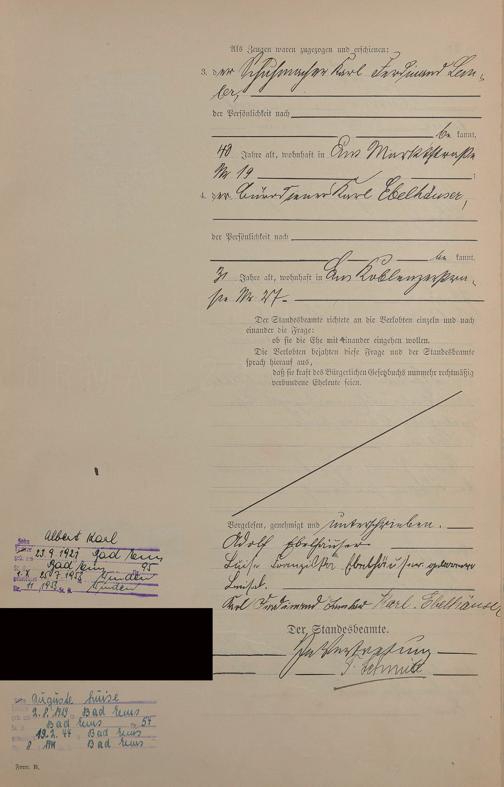 Als Zeugen waren zugezogen und erschienen:
3. der Schuhmacher Karl Ferdinand
der Persönlichkeit nach
be kannt,
48 Jahre alt, wohnhaft in Ems Marktstraße
Nr 19 ;
4. der Bürodiener Karl Ebelhäuser,
der Persönlichkeit nach
be kannt,
31 Jahre alt, wohnhaft in Ems Koblenzerstra-
ße Nr 27.
Der Standesbeamte richtete an die Verlobten einzeln und nach
einander die Frage:
ob sie die Ehe mit einander eingehen wollen.
Die Verlobten bejahten diese Frage und der Standesbeamte
sprach hierauf aus,
daß sie kraft des Bürgerlichen Gesetzbuchs nunmehr rechtmäßig
verbundene Eheleute seien.
Vorgelesen, genehmigt und unterschrieben.
Adolf Ebelhäuser
Luise Franziska Ebelhäuser geborene
Karl Ferdinand Karl Ebelhäuser
Der Standesbeamte.
In Vertretung
Schmidt
Albert Karl
23.9.1921 Bad Ems
Bad Ems 95
Minden
Minden
Auguste Luise
2.8.1919 Bad Ems
Bad Ems 57
19.2.44 Bad Ems
8 1944 Bad Ems
Form. B.